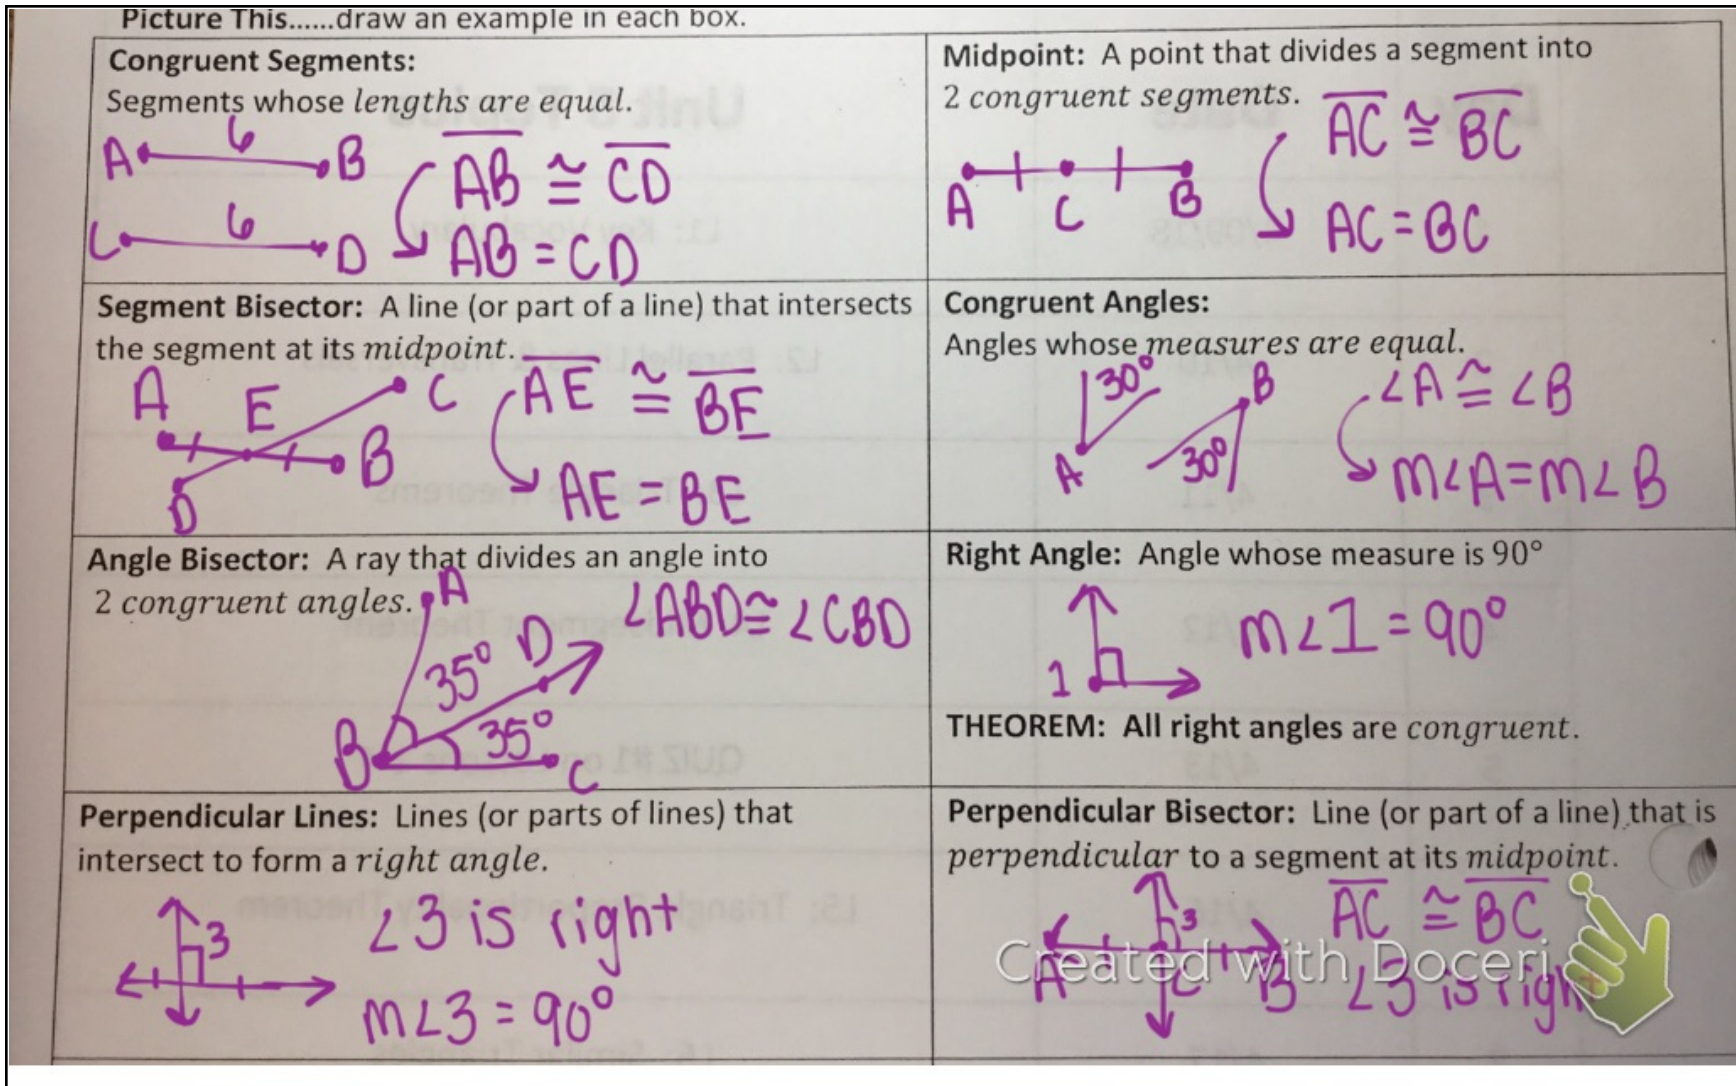 Picture This......draw an example in each box.
Congruent Segments:
Segments whose lengths are equal.
A 6 B
C 6 D
AB ≅ CD
AB = CD
Midpoint: A point that divides a segment into
2 congruent segments.
A C B
AC ≅ BC
AC = BC
Segment Bisector: A line (or part of a line) that intersects
the segment at its midpoint.
A E C
D B
AE ≅ BE
AE = BE
Congruent Angles:
Angles whose measures are equal.
30° B
A 30°
∠A ≅ ∠B
m∠A = m∠B
Angle Bisector: A ray that divides an angle into
2 congruent angles.
A
35° D
B 35° C
∠ABD ≅ ∠CBD
Right Angle: Angle whose measure is 90°
1
m∠1 = 90°
THEOREM: All right angles are congruent.
Perpendicular Lines: Lines (or parts of lines) that
intersect to form a right angle.
3
∠3 is right
m∠3 = 90°
Perpendicular Bisector: Line (or part of a line) that is
perpendicular to a segment at its midpoint.
3
A C B
AC ≅ BC
∠3 is right
Created with Doceri